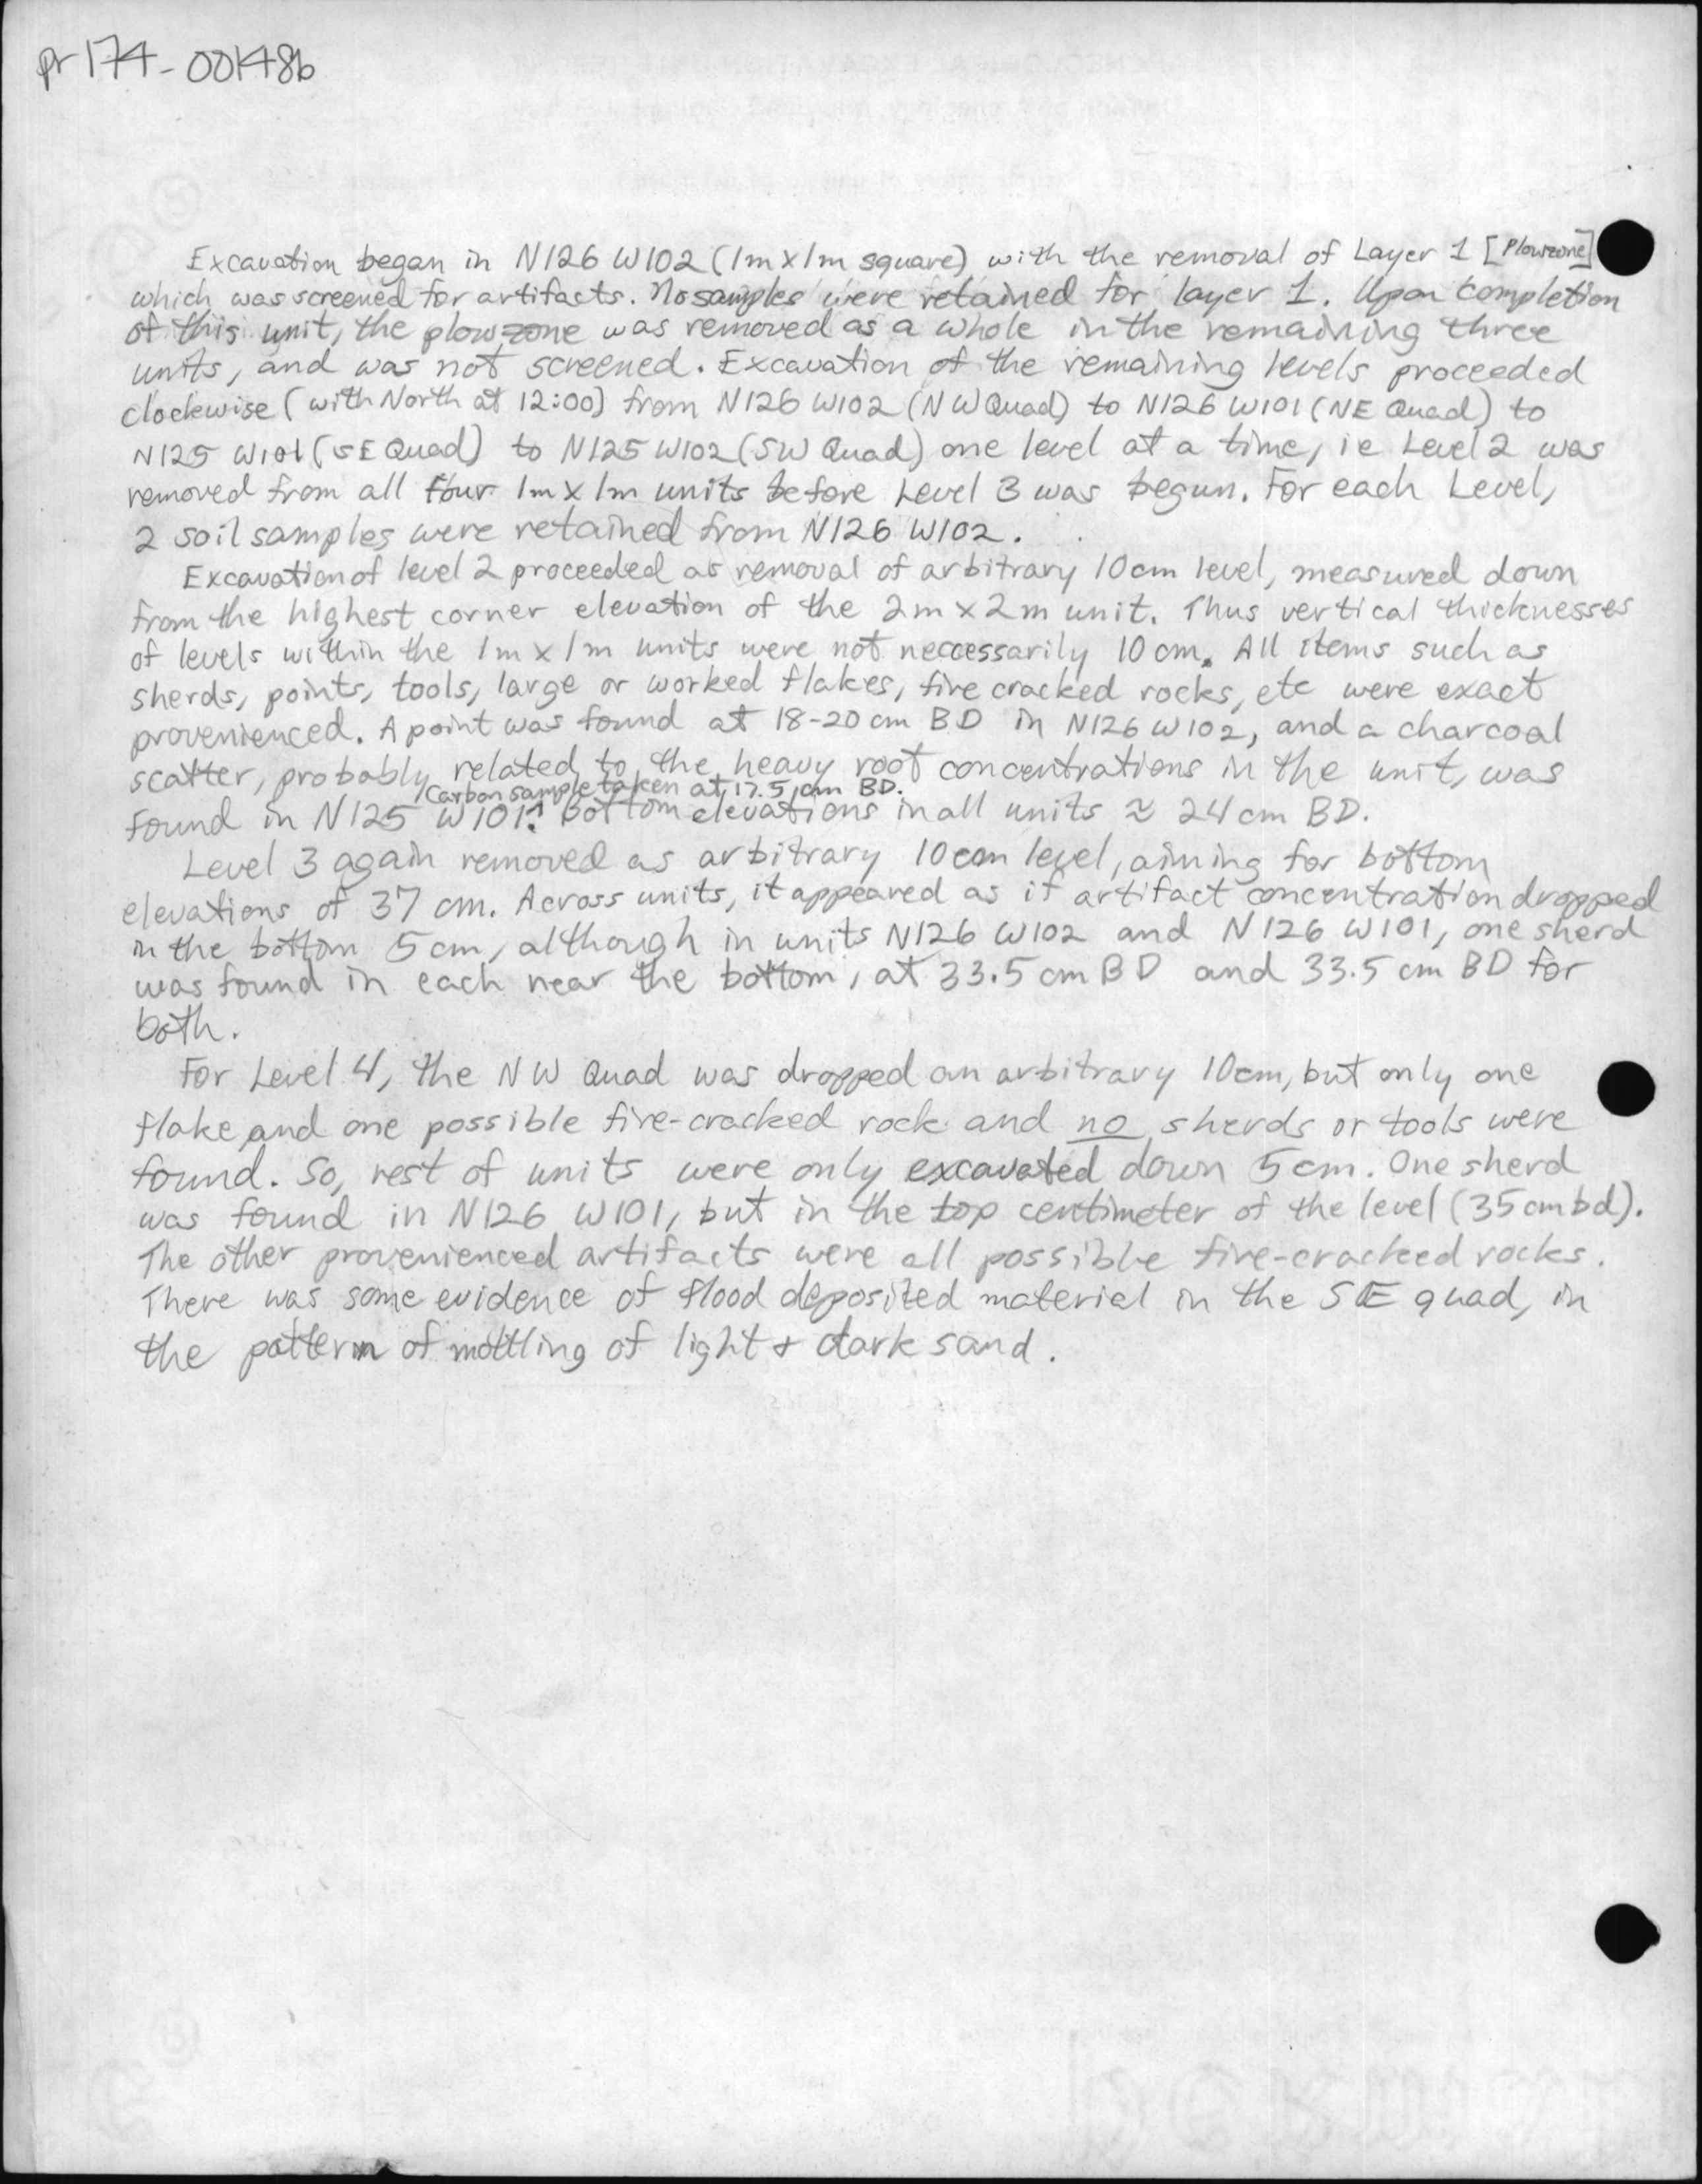 pr 174-00148b
Excavation began in N126 W102 (1m x 1m square) with the removal of Layer 1 [Plowzone]
which was screened for artifacts. No samples were retained for layer 1. Upon completion
of this unit, the plowzone was removed as a whole in the remaining three
units, and was not screened. Excavation of the remaining levels proceeded
clockwise (with North at 12:00) from N126 W102 (NW Quad) to N126 W101 (NE Quad) to
N125 W101 (SE Quad) to N125 W102 (SW Quad) one level at a time, ie Level 2 was
removed from all four 1m x 1m units before Level 3 was begun. For each Level,
2 soil samples were retained from N126 W102.
Excavation of level 2 proceeded as removal of arbitrary 10cm level, measured down
from the highest corner elevation of the 2m x 2m unit. Thus vertical thicknesses
of levels within the 1m x 1m units were not neccessarily 10 cm. All items such as
sherds, points, tools, large or worked flakes, fire cracked rocks, etc were exact
provenienced. A point was found at 18-20 cm BD in N126 W102, and a charcoal
scatter, probably related to the heavy root concentrations in the unit, was
Carbon sample taken at 17.5 cm BD.
found in N125 W101. Bottom elevations in all units ≈ 24 cm BD.
Level 3 again removed as arbitrary 10cm level, aiming for bottom
elevations of 37 cm. Across units, it appeared as if artifact concentration dropped
in the bottom 5cm, although in units N126 W102 and N126 W101, one sherd
was found in each near the bottom, at 33.5 cm BD and 33.5 cm BD for
both.
For Level 4, the NW Quad was dropped an arbitrary 10cm, but only one
flake and one possible fire-cracked rock and no sherds or tools were
found. So, rest of units were only excavated down 5cm. One sherd
was found in N126 W101, but in the top centimeter of the level (35cm bd).
The other provenienced artifacts were all possible fire-cracked rocks.
There was some evidence of flood deposited material in the SE quad, in
the pattern of mottling of light + dark sand.